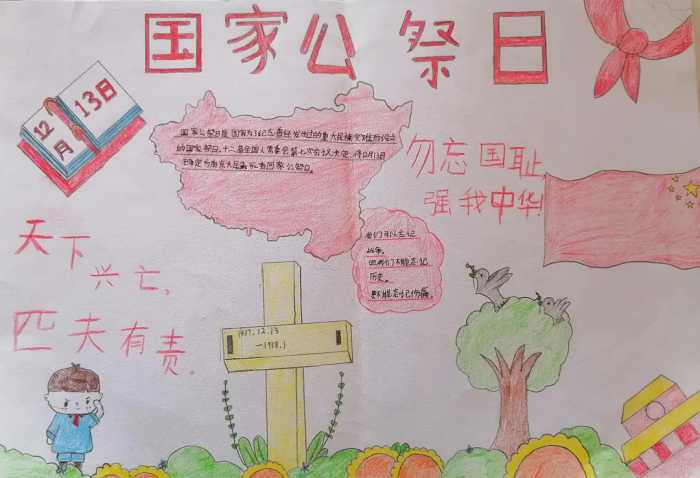 国家公祭日
12月
13日
国家公祭日是国家为纪念曾经发生过的重大民族灾难而设立
的国家祭日。十二届全国人常委会第七次会议决定，将12月13日
确定为南京大屠杀死者国家公祭日。
勿忘国耻，
强我中华！
天下
兴亡，
匹夫有责。
我们可以忘记
但我们不能忘记
历史。
不能忘记伤痛。
1937.12.13
—1938.1